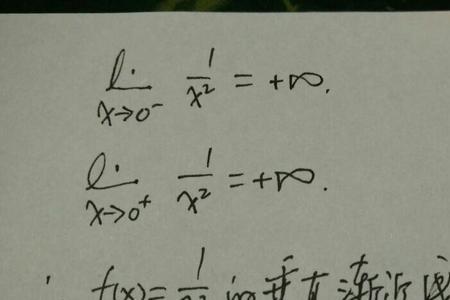 lim x→0⁻ 1/x² = +∞.
lim x→0⁺ 1/x² = +∞.
f(x)=1/x² 的垂直渐近线